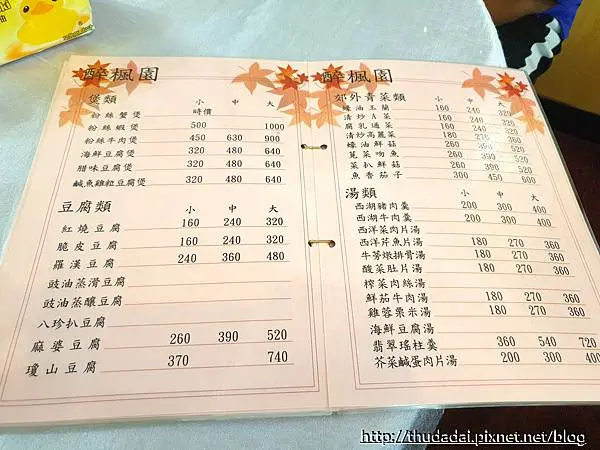 醉楓園
煲類 小 中 大
粉絲蟹煲 時價
粉絲蝦煲 500 1000
粉絲牛肉煲 450 630 900
海鮮豆腐煲 320 480 640
腊味豆腐煲 320 480 640
鹹魚雞粒豆腐煲 320 480 640
豆腐類 小 中 大
紅燒豆腐 160 240 320
脆皮豆腐 160 240 320
羅漢豆腐 240 360 480
豉油蒸滑豆腐
豉油蒸釀豆腐
八珍扒豆腐
麻婆豆腐 260 390 520
瓊山豆腐 370 740
醉楓園
郊外青菜類 小 中 大
蠔油玉蘭 160 240 320
清炒A菜 160 240 320
腐乳通菜 160 240 320
清炒高麗菜 160 240 320
蠔油鮮菇 260 390 520
莧菜吻魚 260 390 520
菜扒鮮菇 260 390 520
魚香茄子 300 450 600
湯類 小 中 大
西湖豬肉羹 200 300 400
西湖牛肉羹 200 300 400
西洋菜肉片湯
西洋芹魚片湯 180 270 360
牛蒡燉排骨湯 180 270 360
酸菜肚片湯 180 270 360
榨菜肉絲湯
鮮茄牛肉湯 180 270 360
雞蓉粟米湯 180 270 360
海鮮豆腐湯
翡翠瑤柱羹 360 540 720
芥菜鹹蛋肉片湯 200 300 400
http://thudadai.pixnet.net/blog